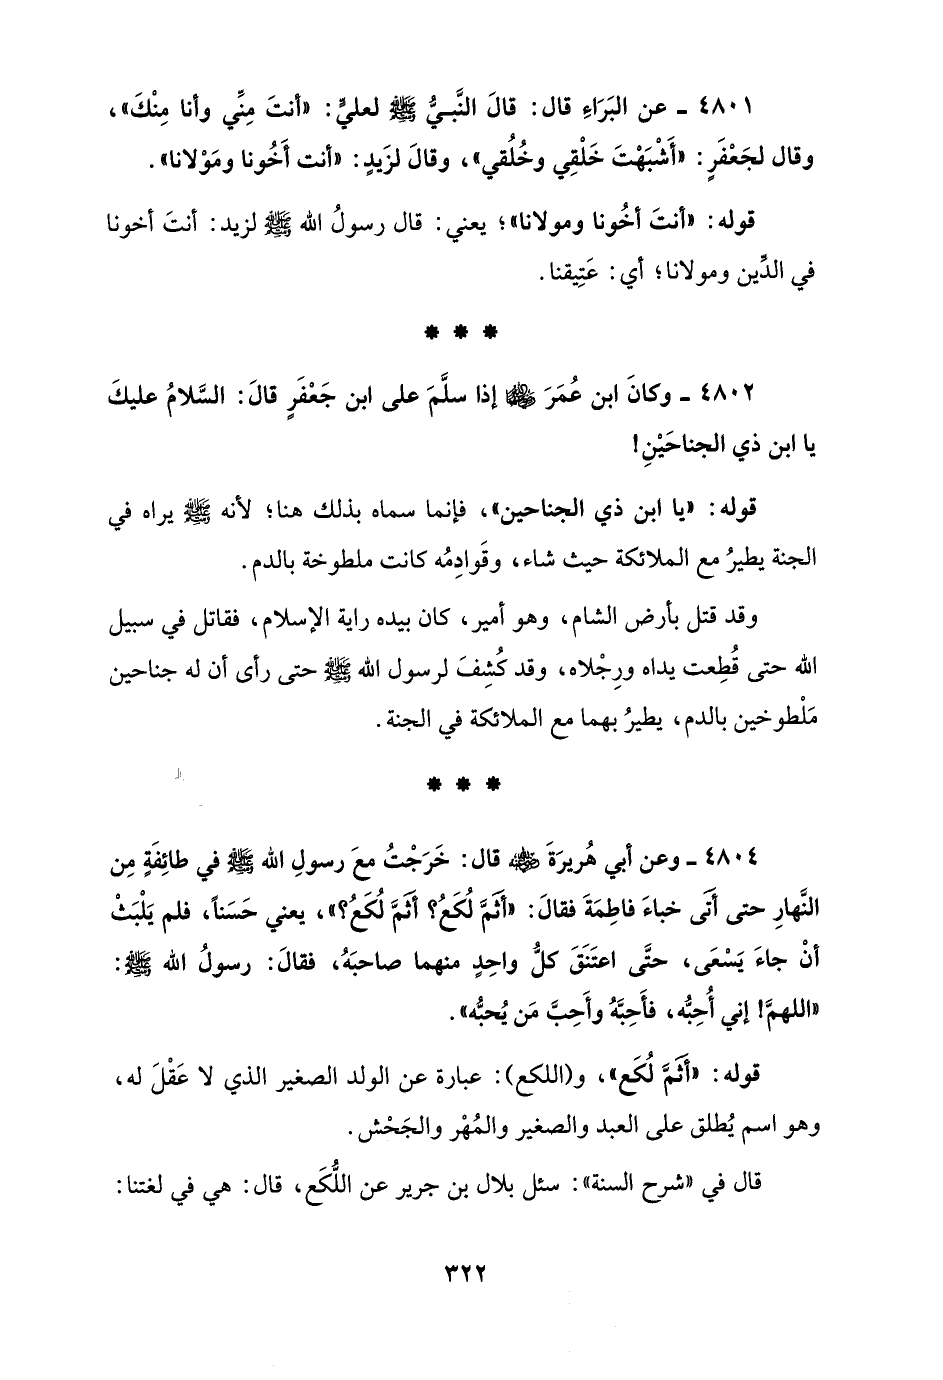 ٤٨٠١ ـ عن البَرَاءِ قال: قالَ النَّبيُّ ﷺ لعليٍّ: «أنتَ مِنِّي وأنا مِنْكَ»،
وقال لجَعْفَرٍ: «أَشْبَهْتَ خَلْقِي وخُلُقي»، وقالَ لزَيدٍ: «أنت أَخُونا ومَوْلانا».
قوله: «أنتَ أخُونا ومولانا»؛ يعني: قال رسولُ الله ﷺ لزيد: أنتَ أخونا
في الدِّين ومولانا؛ أي: عَتِيقنا.
* * *
٤٨٠٢ ـ وكانَ ابن عُمَرَ ﵄ إذا سلَّمَ على ابن جَعْفَرٍ قالَ: السَّلامُ عليكَ
يا ابن ذي الجناحَيْنِ!
قوله: «يا ابن ذي الجناحين»، فإنما سماه بذلك هنا؛ لأنه ﷺ يراه في
الجنة يطيرُ مع الملائكة حيث شاء، وقَوادِمُه كانت ملطوخة بالدم.
وقد قتل بأرض الشام، وهو أمير، كان بيده راية الإسلام، فقاتل في سبيل
الله حتى قُطِعت يداه ورِجْلاه، وقد كُشِفَ لرسول الله ﷺ حتى رأى أن له جناحين
مَلْطوخين بالدم، يطيرُ بهما مع الملائكة في الجنة.
* * *
٤٨٠٤ ـ وعن أبي هُريرَةَ ﵁ قال: خَرَجْتُ معَ رسولِ الله ﷺ في طائِفَةٍ مِن
النَّهارِ حتى أَتَى خباءَ فاطِمَةَ فقالَ: «أَثَمَّ لُكَعُ؟ أثَمَّ لُكَعُ؟»، يعني حَسَناً، فلم يَلْبَثْ
أنْ جاءَ يَسْعَى، حتَّى اعتَنَقَ كلُّ واحِدٍ منهما صاحبَهُ، فقالَ: رسولُ الله ﷺ:
«اللهمَّ! إني أُحِبُّه، فأَحِبَّهُ وأَحِبَّ مَن يُحبُّه».
قوله: «أَثَمَّ لُكَع»، و(اللكع): عبارة عن الولد الصغير الذي لا عَقْلَ له،
وهو اسم يُطلق على العبد والصغير والمُهْر والجَحْش.
قال في «شرح السنة»: سئل بلال بن جرير عن اللُّكَع، قال: هي في لغتنا:
٣٢٢